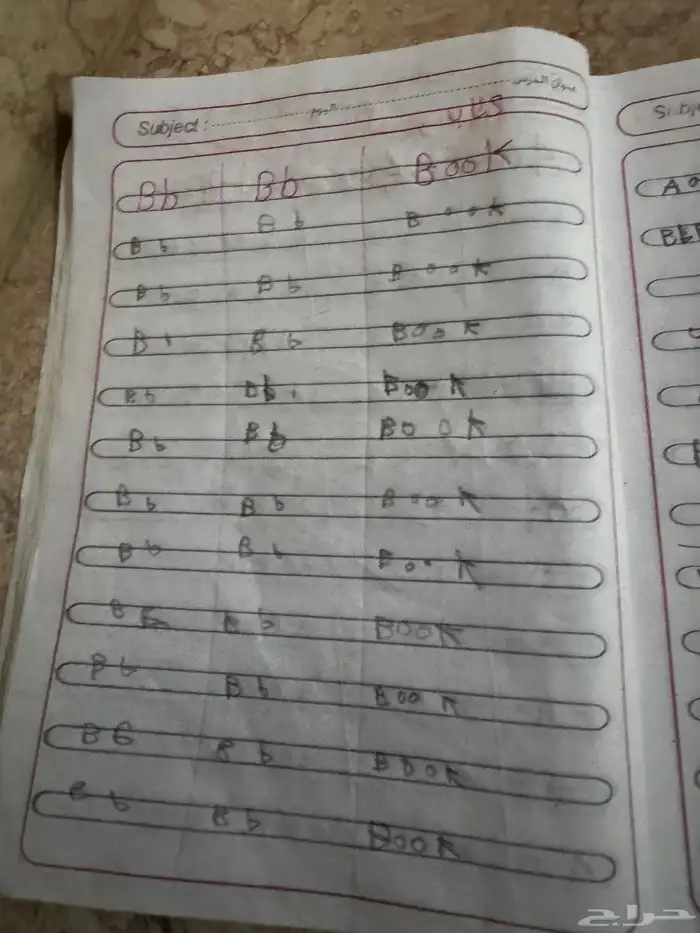 عنوان الدرس اليوم Subject:
كتاب
Bb Bb BooK
Bb Bb BooK
Bb Bb BooK
Bb Bb BooK
Bb Bb BooK
Bb Bb BooK
Bb Bb BooK
Bb Bb BooK
Bb Bb BooK
Bb Bb BooK
BB Bb BooK
Bb Bb BooK
حراج